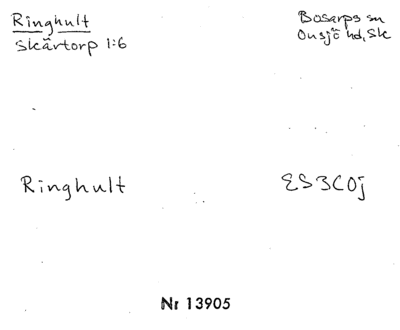 Ringhult
Skärtorp 1:6
Bosarps sn
Onsjö hd, Sk
Ringhult
ES3C0j
Nr 13905